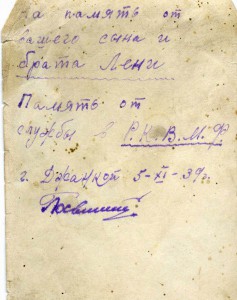 На память от
вашего сына и
брата Лени
Память от
службы в Р.К.В.М.Ф
г. Джанкой 5-XI-39г.